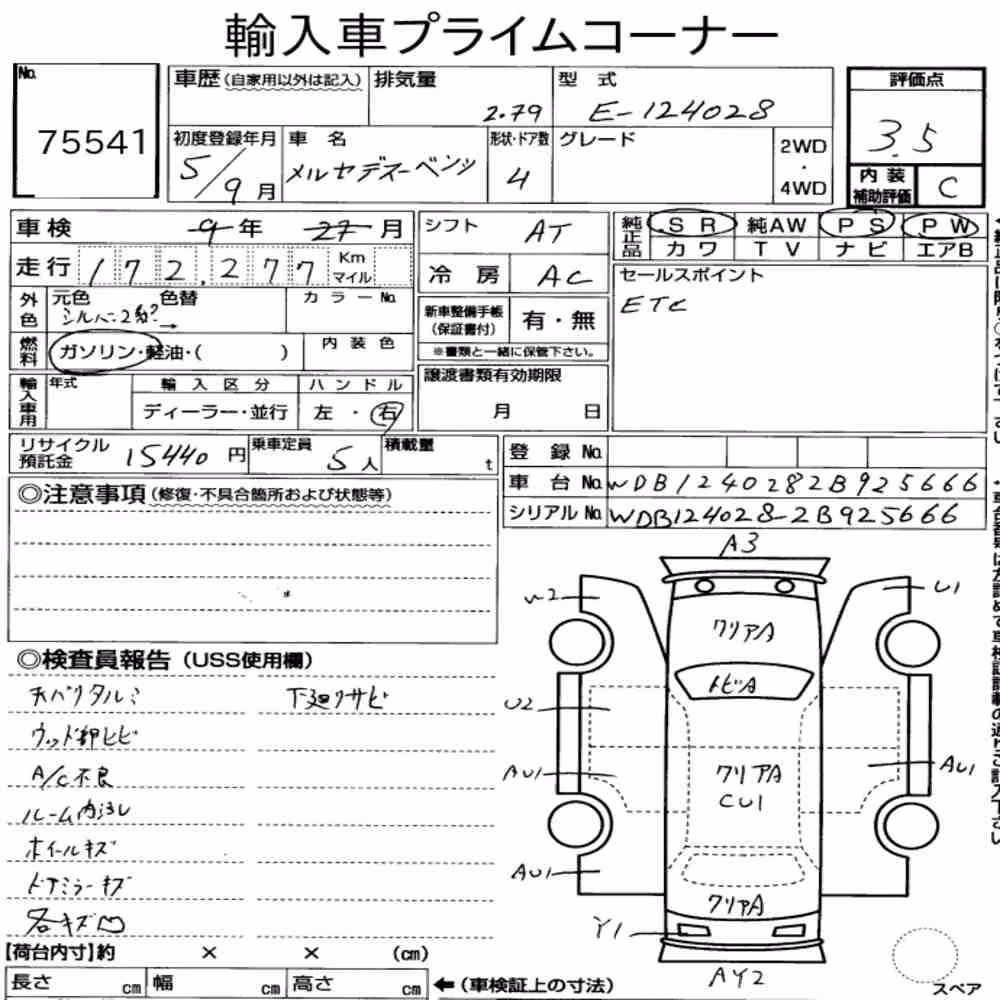 輸入車プライムコーナー
No.
75541
車歴(自家用以外は記入)
排気量
2.79
型 式
E-124028
評価点
3.5
初度登録年月
5/9月
車 名
メルセデスーベンツ
形状・ドア数
4
グレード
2WD
・
4WD
内 装
補助評価
C
車検
9年 27月
シフト
AT
純正品
SR 純AW PS PW
カワ TV ナビ エアB
走行
172,277
Km
マイル
冷 房
AC
セールスポイント
ETC
外色
元色 色替
シルバー2
カラーNo.
新車整備手帳
(保証書付)
有・無
※書類と一緒に保管下さい。
燃料
ガソリン・軽油・( )
内 装 色
輸入車用
年式
輸 入 区 分
ハ ン ド ル
ディーラー・並行
左 ・ 右
譲渡書類有効期限
月 日
リサイクル
預託金
15440 円
乗車定員
5人
積載量
t
登 録 No.
車 台 No. WDB1240282B925666
シリアル No. WDB124028-2B925666
◎注意事項(修復・不具合箇所および状態等)
◎検査員報告(USS使用欄)
天バリタルミ
下廻リサビ
ウッド類ヒビ
A/C不良
ルーム内ヨゴレ
ホイールキズ
ドアミラーキズ
各キズ凹
A3
W2
U1
クリアA
トビA
U2
AU1
クリアA
CU1
AU1
AU1
クリアA
Y1
AY2
スペア
【荷台内寸】約 × × (cm)
長さ cm 幅 cm 高さ cm ←(車検証上の寸法)